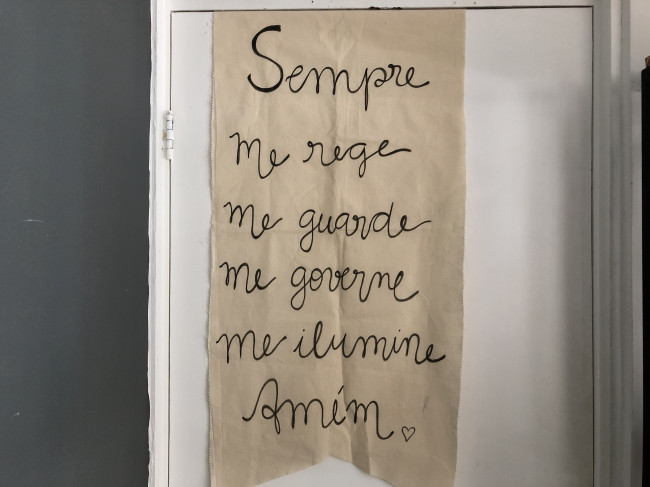 Sempre
me rege
me guarde
me governe
me ilumine
Amém.♡